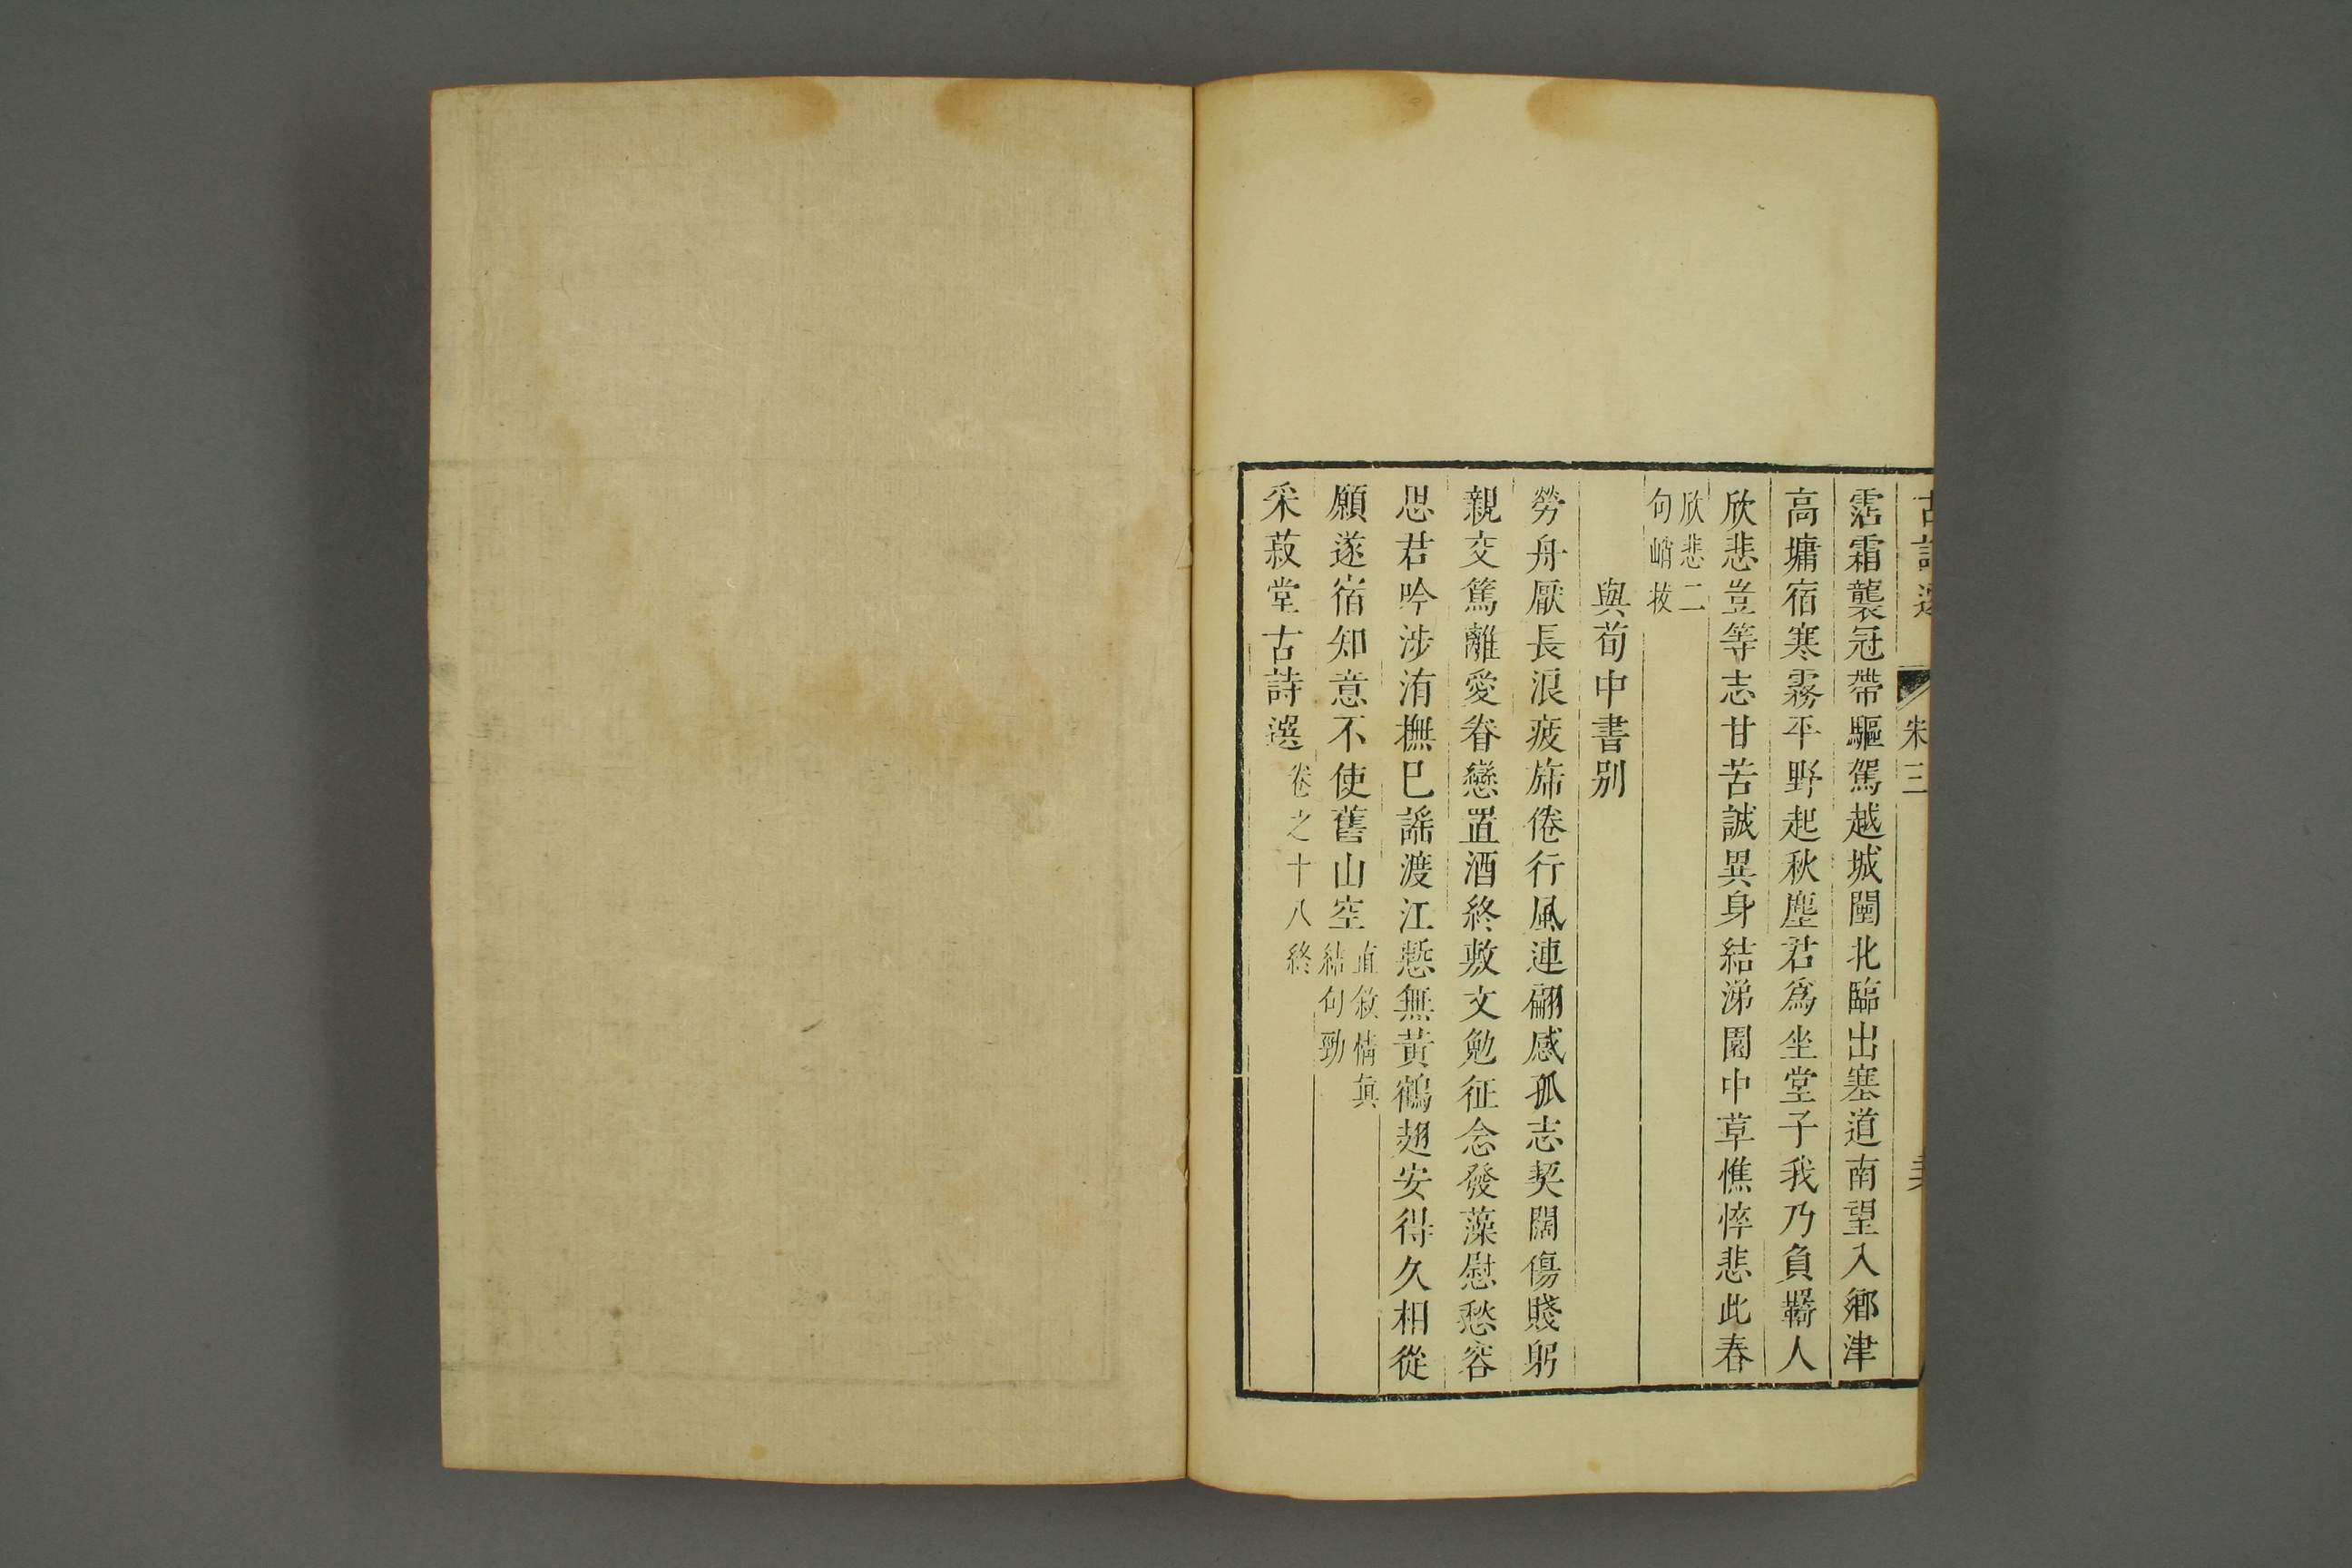 古詩選 宋三
霑霜襲冠帶驅駕越城闉北臨出塞道南望入鄉津
高墉宿寒霧平野起秋塵君爲坐堂子我乃負羇人
欣悲豈等志甘苦誠異身結涕園中草憔悴悲此春
欣悲二
句峭拔
與荀中書别
勞舟厭長浪疲旆倦行風連翩感孤志契闊傷賤躬
親交篤離愛眷戀置酒終敷文勉征念發藻慰愁容
思君吟涉洧撫巳謡渡江慙無黃鶴翅安得久相從
願遂宿知意不使舊山空
直敘情真
結句勁
采菽堂古詩選卷之十八終